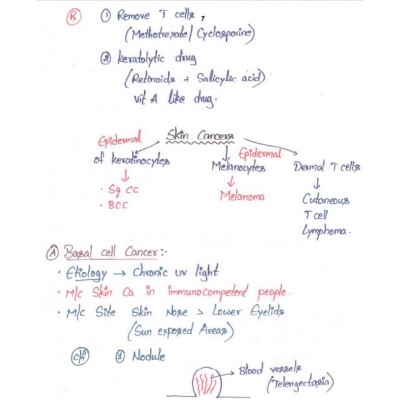 Rx ① Remove T cells,
(Methotrexate/Cyclosporine)
② keratolytic drug
(Retinoids + Salicylic acid)
vit A like drug.
Skin Cancers
Epidermal Epidermal
of keratinocytes Melanocytes Dermal T cells
• Sq CC Melanoma Cutaneous
• BCC T cell
Lymphoma.
Ⓐ Basal cell Cancer:-
• Etiology → Chronic UV light
• M/c Skin Ca in immunocompetent people.
• M/c Site Skin Nose > Lower Eyelids
(Sun exposed Areas)
C/f ① Nodule
Blood vessels
(Telengectasia)